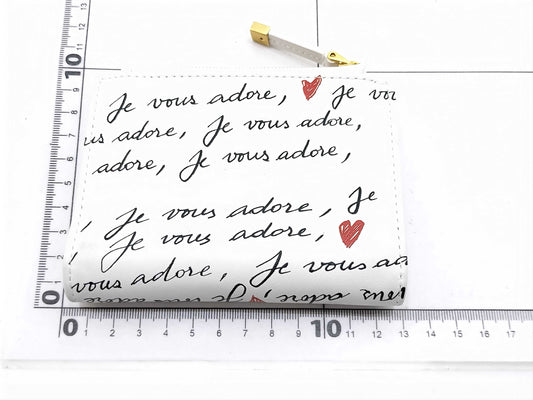 Je vous adore, Je vou
us adore, Je vous adore,
adore, Je vous adore,
, Je vous adore, Je
, Je vous adore,
vous adore, Je vous ad
13
12
11
10
9
8
7
6
5
4
3
2
1
0
0 1 2 3 4 5 6 7 8 9 10 11 12 13 14 15 16 17